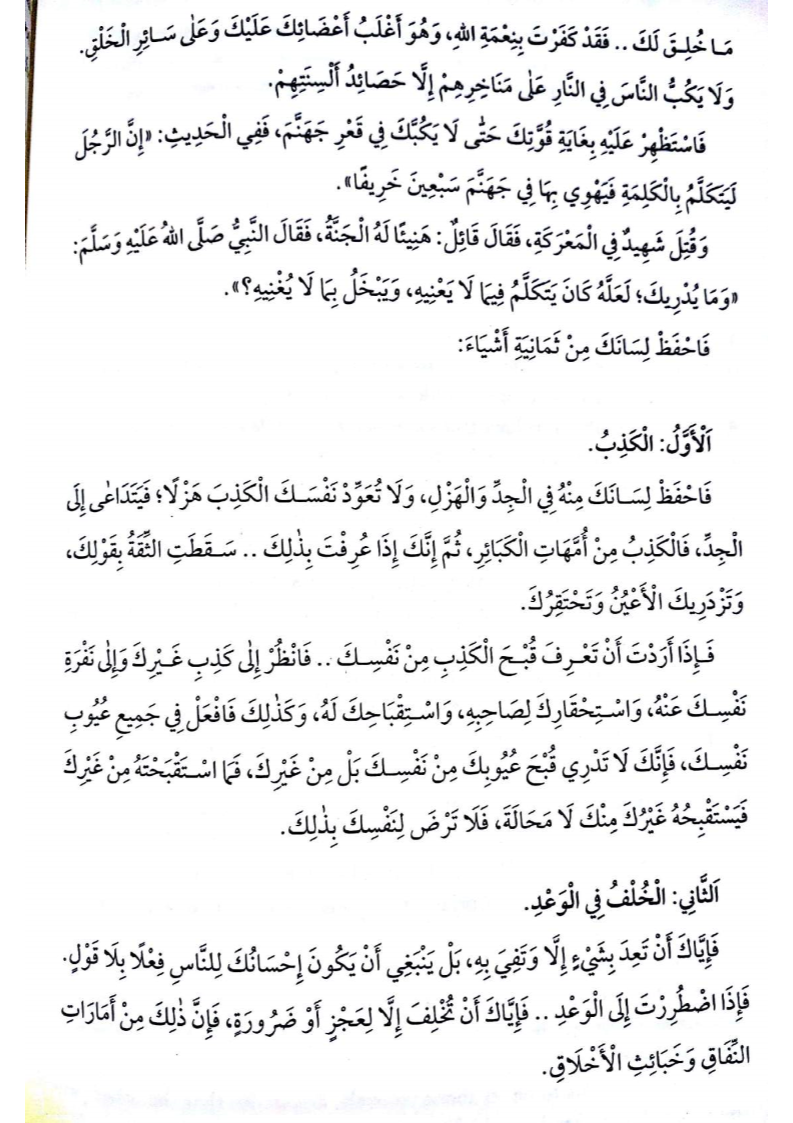 مَا خُلِقَ لَكَ .. فَقَدْ كَفَرْتَ بِنِعْمَةِ اللهِ، وَهُوَ أَغْلَبُ أَعْضَائِكَ عَلَيْكَ وَعَلَى سَائِرِ الْخَلْقِ.
وَلَا يَكُبُّ النَّاسَ فِي النَّارِ عَلَى مَنَاخِرِهِمْ إِلَّا حَصَائِدُ أَلْسِنَتِهِمْ.
فَاسْتَظْهِرْ عَلَيْهِ بِغَايَةِ قُوَّتِكَ حَتَّى لَا يَكُبَّكَ فِي قَعْرِ جَهَنَّمَ، فَفِي الْحَدِيثِ: «إِنَّ الرَّجُلَ
لَيَتَكَلَّمُ بِالْكَلِمَةِ فَيَهْوِي بِهَا فِي جَهَنَّمَ سَبْعِينَ خَرِيفًا».
وَقُتِلَ شَهِيدٌ فِي الْمَعْرَكَةِ، فَقَالَ قَائِلٌ: هَنِيئًا لَهُ الْجَنَّةُ، فَقَالَ النَّبِيُّ صَلَّى اللهُ عَلَيْهِ وَسَلَّمَ:
«وَمَا يُدْرِيكَ؛ لَعَلَّهُ كَانَ يَتَكَلَّمُ فِيمَا لَا يَعْنِيهِ، وَيَبْخَلُ بِمَا لَا يُغْنِيهِ؟».
فَاحْفَظْ لِسَانَكَ مِنْ ثَمَانِيَةِ أَشْيَاءَ:
اَلْأَوَّلُ: الْكَذِبُ.
فَاحْفَظْ لِسَانَكَ مِنْهُ فِي الْجِدِّ وَالْهَزْلِ، وَلَا تُعَوِّدْ نَفْسَكَ الْكَذِبَ هَزْلًا؛ فَيَتَدَاعَى إِلَى
الْجِدِّ، فَالْكَذِبُ مِنْ أُمَّهَاتِ الْكَبَائِرِ، ثُمَّ إِنَّكَ إِذَا عُرِفْتَ بِذٰلِكَ .. سَقَطَتِ الثِّقَةُ بِقَوْلِكَ،
وَتَزْدَرِيكَ الْأَعْيُنُ وَتَحْتَقِرُكَ.
فَإِذَا أَرَدْتَ أَنْ تَعْرِفَ قُبْحَ الْكَذِبِ مِنْ نَفْسِكَ .. فَانْظُرْ إِلَى كَذِبِ غَيْرِكَ وَإِلَى نَفْرَةِ
نَفْسِكَ عَنْهُ، وَاسْتِحْقَارِكَ لِصَاحِبِهِ، وَاسْتِقْبَاحِكَ لَهُ، وَكَذٰلِكَ فَافْعَلْ فِي جَمِيعِ عُيُوبِ
نَفْسِكَ، فَإِنَّكَ لَا تَدْرِي قُبْحَ عُيُوبِكَ مِنْ نَفْسِكَ بَلْ مِنْ غَيْرِكَ، فَمَا اسْتَقْبَحْتَهُ مِنْ غَيْرِكَ
فَيَسْتَقْبِحُهُ غَيْرُكَ مِنْكَ لَا مَحَالَةَ، فَلَا تَرْضَ لِنَفْسِكَ بِذٰلِكَ.
اَلثَّانِي: الْخُلْفُ فِي الْوَعْدِ.
فَإِيَّاكَ أَنْ تَعِدَ بِشَيْءٍ إِلَّا وَتَفِيَ بِهِ، بَلْ يَنْبَغِي أَنْ يَكُونَ إِحْسَانُكَ لِلنَّاسِ فِعْلًا بِلَا قَوْلٍ.
فَإِذَا اضْطُرِرْتَ إِلَى الْوَعْدِ .. فَإِيَّاكَ أَنْ تُخْلِفَ إِلَّا لِعَجْزٍ أَوْ ضَرُورَةٍ، فَإِنَّ ذٰلِكَ مِنْ أَمَارَاتِ
النِّفَاقِ وَخَبَائِثِ الْأَخْلَاقِ.